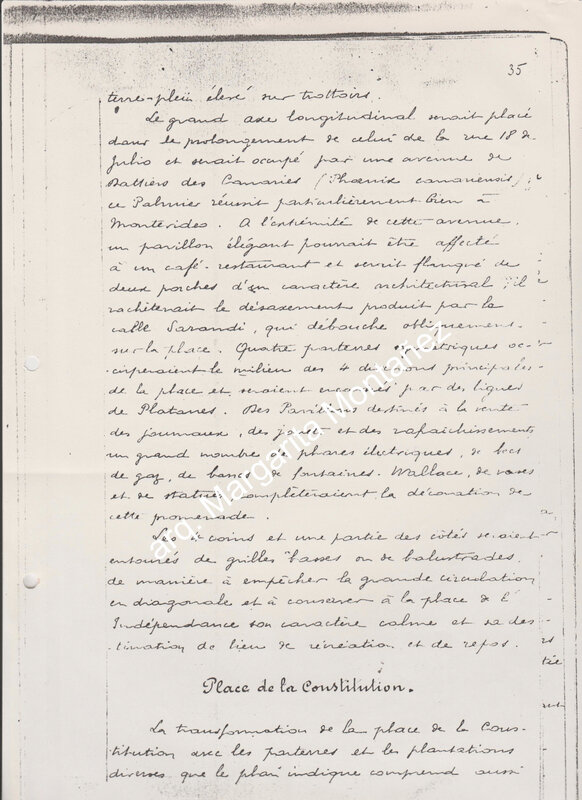 35
terre-plein élevé sur trottoirs.
Le grand axe longitudinal serait placé
dans le prolongement de celui de la rue 18 de
Julio et serait occupé par une avenue de
Dattiers des Canaries (Phoenix canariensis);
ce Palmier réussit particulièrement bien à
Montevideo. A l'extrémité de cette avenue,
un pavillon élégant pourrait être affecté
à un café-restaurant et serait flanqué de
deux porches d'un caractère architectural; il
rachèterait le désaxement produit par la
calle Sarandi, qui débouche obliquement
sur la place. Quatre parterres symétriques oc-
cuperaient le milieu des 4 divisions principales
de la place et seraient encadrés par des lignes
de Platanes. Des Pavillons destinés à la vente
des journaux, des jouets et des rafraichissements
un grand nombre de phares électriques, de becs
de gaz, de bancs, de fontaines Wallace, de vases
et de statues complèteraient la décoration de
cette promenade.
Les 4 coins et une partie des côtés seraient
entourés de grilles basses ou de balustrades
de manière à empêcher la grande circulation
en diagonale et à conserver à la place de l'
Indépendance son caractère calme et sa des-
tination de lieu de récréation et de repos.
Place de la Constitution.
La transformation de la place de la Cons-
titution avec les parterres et les plantations
diverses que le plan indique comprend aussi
arq. Margarita Montañez